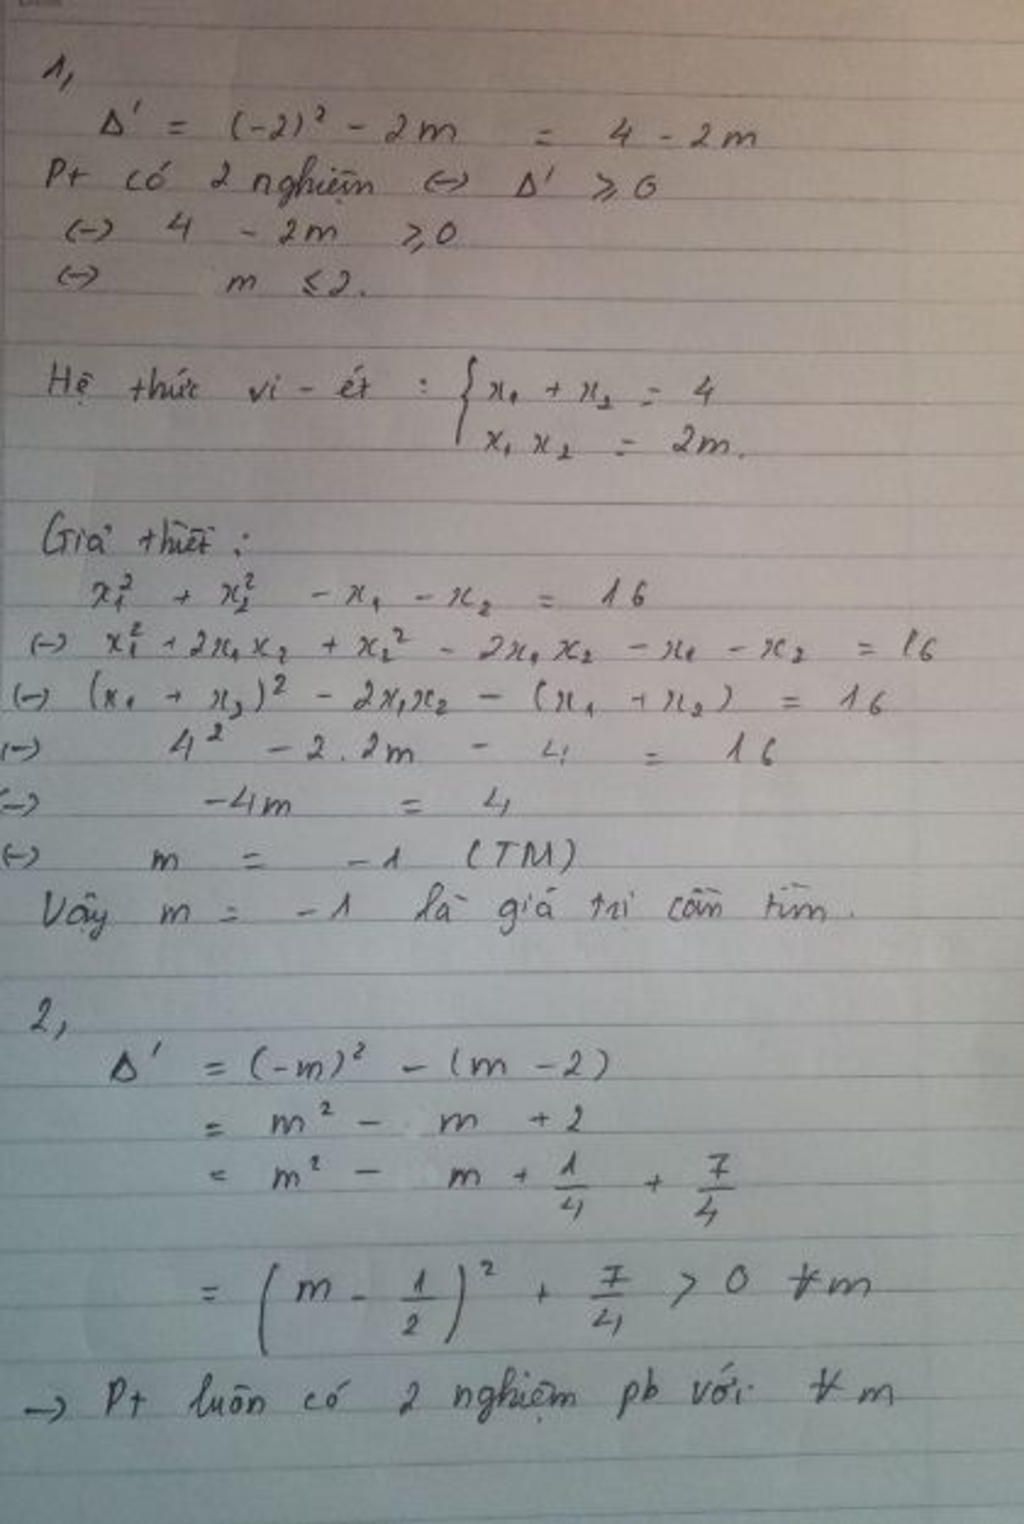 1,
Δ' = (-2)² - 2m = 4 - 2m
Pt có 2 nghiệm <-> Δ' ≥ 0
<-> 4 - 2m ≥ 0
<-> m ≤ 2.
Hệ thức vi-ét : { x₁ + x₂ = 4
x₁ x₂ = 2m.
Giả thiết :
x₁² + x₂² - x₁ - x₂ = 16
<-> x₁² + 2x₁x₂ + x₂² - 2x₁x₂ - x₁ - x₂ = 16
<-> (x₁ + x₂)² - 2x₁x₂ - (x₁ + x₂) = 16
<-> 4² - 2.2m - 4 = 16
<-> -4m = 4
<-> m = -1 (TM)
Vậy m = -1 là giá trị cần tìm.
2,
Δ' = (-m)² - (m - 2)
= m² - m + 2
= m² - m + 1/4 + 7/4
= (m - 1/2)² + 7/4 > 0 ∀m
-> Pt luôn có 2 nghiệm pb với ∀m